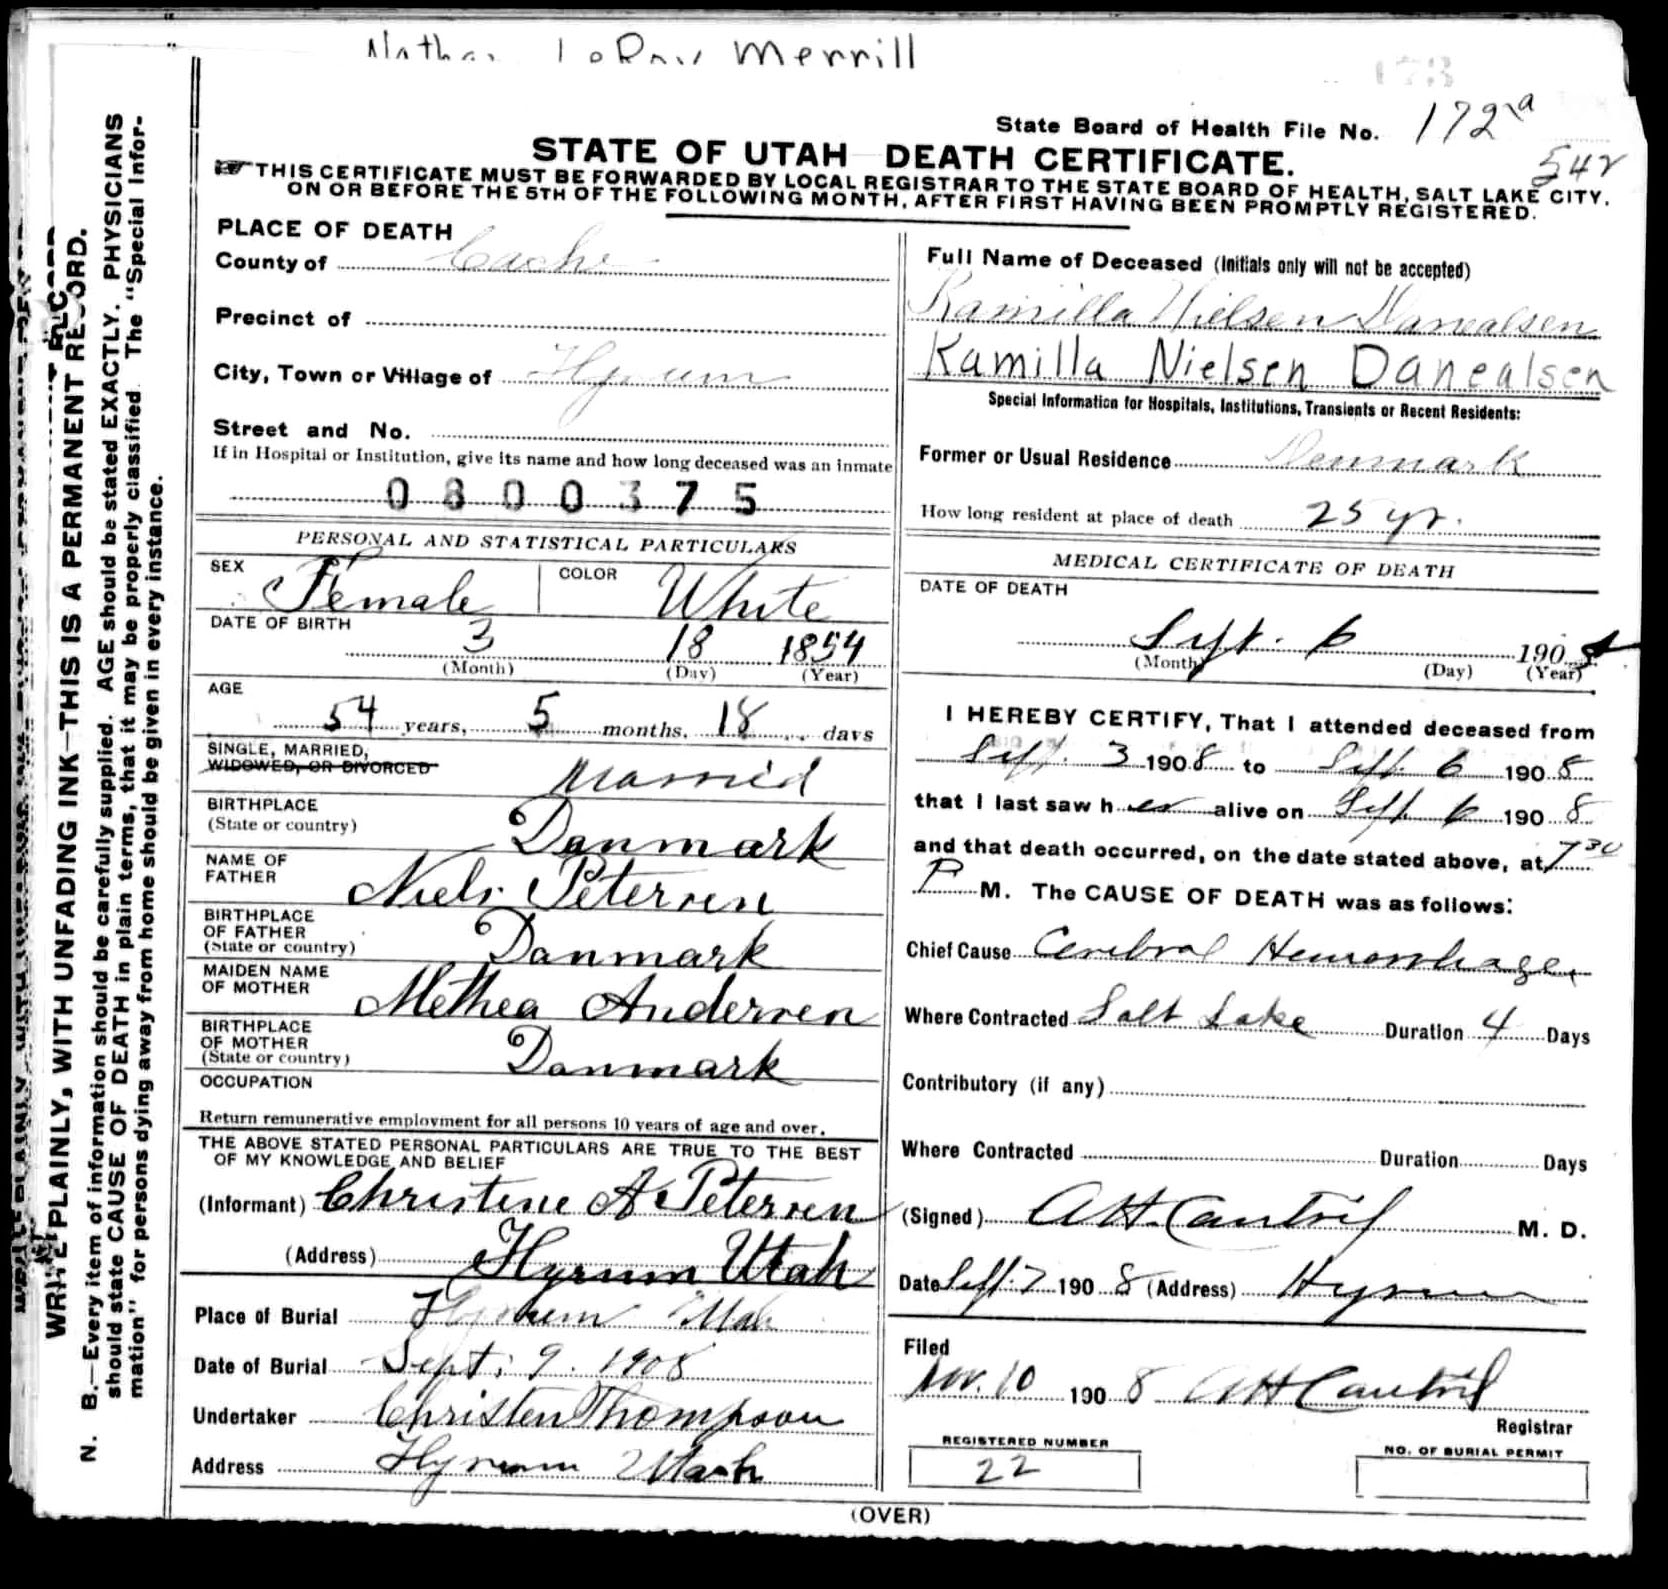 Merrill
173
State Board of Health File No. 172a
STATE OF UTAH DEATH CERTIFICATE.
542
THIS CERTIFICATE MUST BE FORWARDED BY LOCAL REGISTRAR TO THE STATE BOARD OF HEALTH, SALT LAKE CITY,
ON OR BEFORE THE 5TH OF THE FOLLOWING MONTH, AFTER FIRST HAVING BEEN PROMPTLY REGISTERED.
WRITE PLAINLY, WITH UNFADING INK—THIS IS A PERMANENT RECORD.
N. B.—Every item of information should be carefully supplied. AGE should be stated EXACTLY. PHYSICIANS
should state CAUSE OF DEATH in plain terms, that it may be properly classified. The "Special Infor-
mation" for persons dying away from home should be given in every instance.
PLACE OF DEATH
County of Cache
Precinct of
City, Town or Village of Hyrum
Street and No.
If in Hospital or Institution, give its name and how long deceased was an inmate
0800375
PERSONAL AND STATISTICAL PARTICULARS
SEX Female COLOR White
DATE OF BIRTH
3 18 1854
(Month) (Day) (Year)
AGE
54 years, 5 months, 18 days
SINGLE, MARRIED,
WIDOWED, OR DIVORCED Married
BIRTHPLACE
(State or country) Danmark
NAME OF
FATHER Niels Petersen
BIRTHPLACE
OF FATHER
(State or country) Danmark
MAIDEN NAME
OF MOTHER Methea Andersen
BIRTHPLACE
OF MOTHER
(State or country) Danmark
OCCUPATION
Return remunerative employment for all persons 10 years of age and over.
THE ABOVE STATED PERSONAL PARTICULARS ARE TRUE TO THE BEST
OF MY KNOWLEDGE AND BELIEF
(Informant) Christene A Petersen
(Address) Hyrum Utah
Place of Burial Hyrum Utah
Date of Burial Sept. 9. 1908
Undertaker Christen Thompson
Address Hyrum Utah
Full Name of Deceased (Initials only will not be accepted)
Kamilla Nielsen Danealsen
Kamilla Nielsen Danealsen
Special Information for Hospitals, Institutions, Transients or Recent Residents:
Former or Usual Residence Denmark
How long resident at place of death 25 yr.
MEDICAL CERTIFICATE OF DEATH
DATE OF DEATH
Sept. 6 1908
(Month) (Day) (Year)
I HEREBY CERTIFY, That I attended deceased from
Sept. 3 1908 to Sept. 6 1908
that I last saw her alive on Sept. 6 1908
and that death occurred, on the date stated above, at 7 30
P M. The CAUSE OF DEATH was as follows:
Chief Cause Cerebral Hemorrhage
Where Contracted Salt Lake Duration 4 Days
Contributory (if any)
Where Contracted Duration Days
(Signed) A H. Cantril M. D.
Date Sept. 7 1908 (Address) Hyrum
Filed
Nov. 10 1908 A H Cantril
Registrar
REGISTERED NUMBER
22
NO. OF BURIAL PERMIT
(OVER)